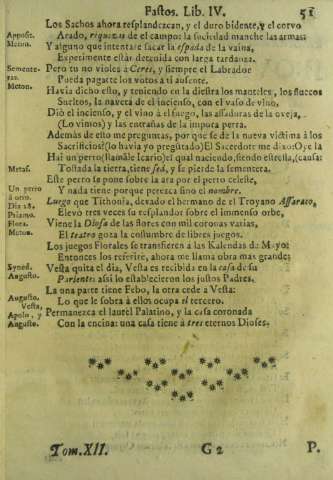 Fastos. Lib. IV. 51
Los Sachos ahora resplandezcan, y el duro bidente, y el corvo
Apposit. Arado, riquezas de el campo: la suciedad manche las armas:
Metion. Y alguno que intentare sacar la espada de la vaina,
Experimente estár detenida con larga tardanza.
Semente- Pero tu no violes à Ceres, y siempre el Labrador
ras. Pueda pagarte los votos à ti ausente.
Meton. Havia dicho esto, y teniendo en la diestra los manteles, los fluecos
Sueltos, la naveta de el incienso, con el vaso de vino,
Diò el incienso, y el vino à el fuego, las assaduras de la oveja,
(Lo vimos) y las entrañas de la impura perra.
Además de esto me preguntas, por què se dè la nueva victima à los
Sacrificios? (lo havia yo preguntado) El Sacerdote me dixo: Oye la
Hai un perro (llamàle Icario) el qual naciendo, siendo estrella, (causa:
Metaf. Tostada la tierra, tiene sed, y se pierde la sementera.
Este perro se pone sobre la ara por el perro celeste,
Un perro Y nada tiene porque perezca sino el nombre.
à otro.
Dia 28. Luego que Tithonia, devado el hermano de el Troyano Assaraco,
Priamo. Elevò tres veces su resplandor sobre el immenso orbe,
Flora. Viene la Diosa de las flores con mil coronas varias,
Meton. El teatro goza la costumbre de libres juegos.
Los juegos Florales se transfieren a las Kalendas de Mayo:
Entonces los referirè, ahora me llama obra mas grande:
Syned. Vesta quita el dia, Vesta es recibida en la casa de su
Augusto. Pariente: assi lo establecieron los justos Padres.
La una parte tiene Febo, la otra cede a Vesta:
Augusto. Lo que le sobra à ellos ocupa el tercero.
Vesta,
Apolo, y Permanezca el laurèl Palatino, y la casa coronada
Augusto. Con la encina: una casa tiene à tres eternos Dioses.
Tom. XII. G 2 P.